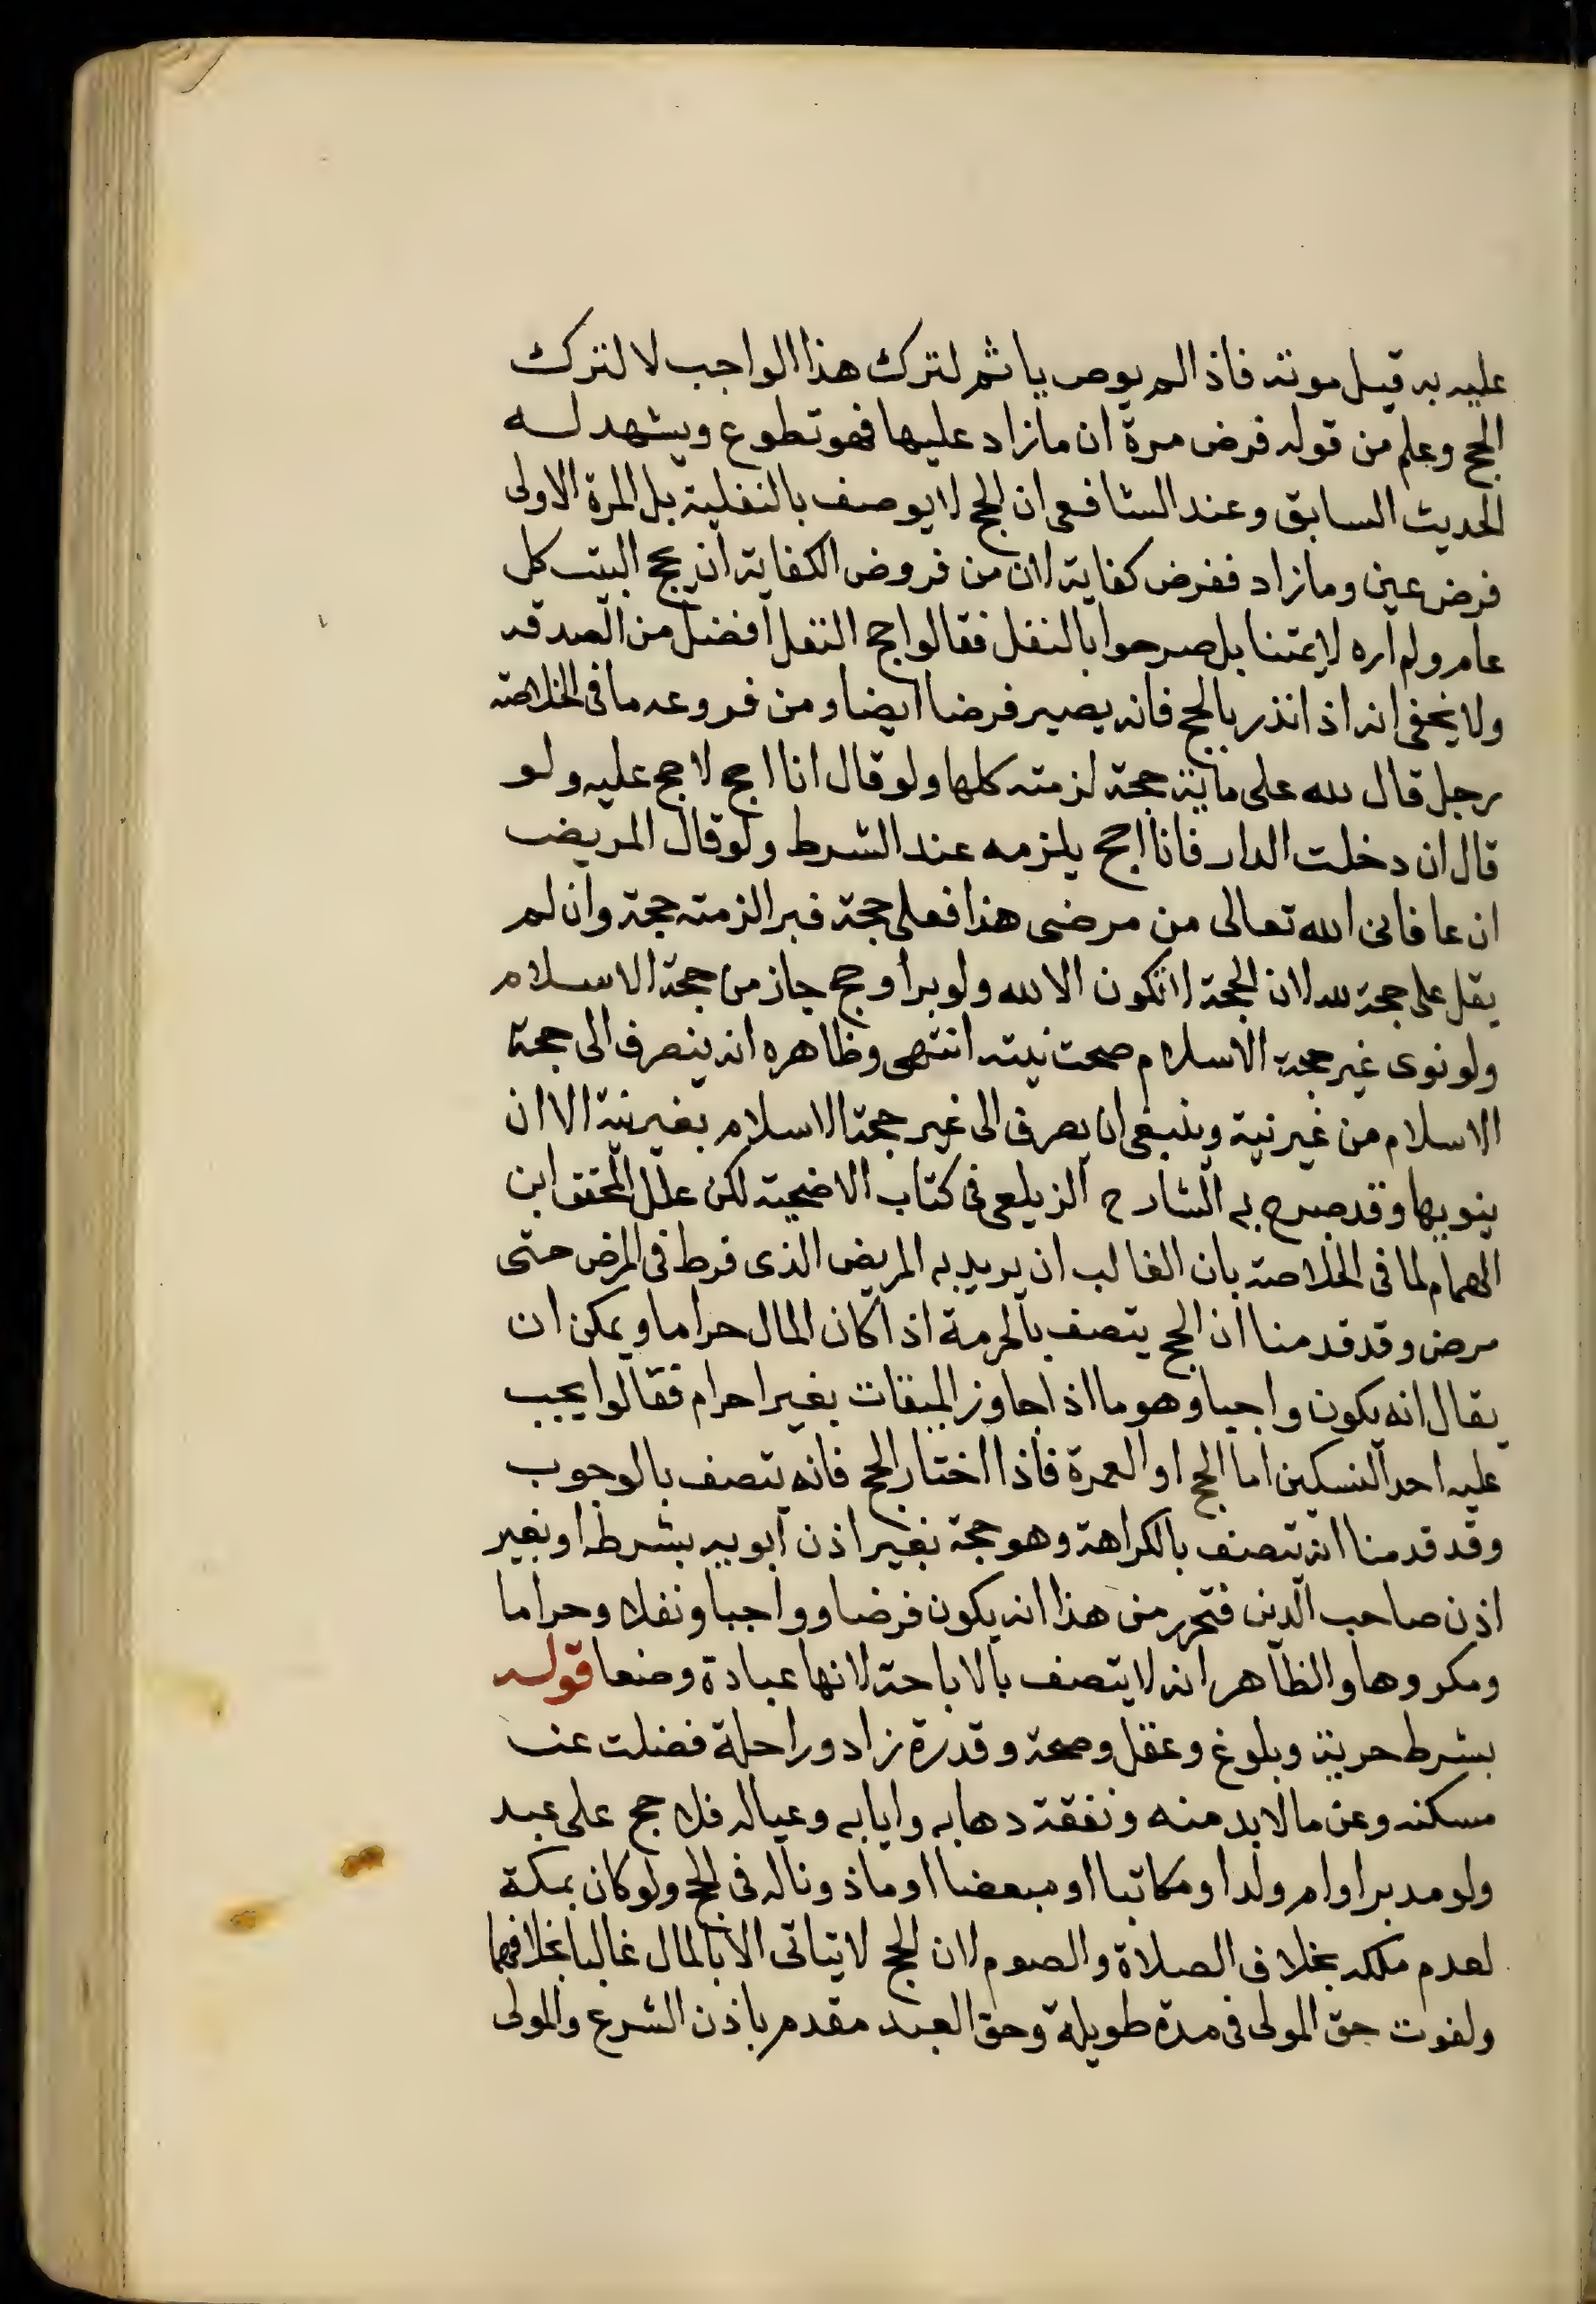 عليه به قبيل موته فاذا لم يوص ياثم لترك هذا الواجب لا لترك
الحج وعلم من قوله فرض مرة ان ما زاد عليها فهو تطوع ويشهد له
الحديث السابق وعند الشافعى ان الحج لا يوصف بالنفلية بل المرة الاولى
فرض عين وما زاد ففرض كفاية لان من فروض الكفاية ان يحج البيت كل
عام ولم اره لايمتنا بل صرحوا بالنفل فقالوا حج النفل افضل من الصدقة
ولا يخفى انه اذا نذر بالحج فانه يصير فرضا ايضا ومن فروعه ما فى الخلاصة
رجل قال لله على ماية حجة لزمته كلها ولو قال انا احج لا حج عليه ولو
قال ان دخلت الدار فانا احج يلزمه عند الشرط ولو قال المريض
ان عافانى الله تعالى من مرضى هذا فعلى حجة فبرا لزمته حجة وان لم
يقل على حجة لله لان الحجة لا تكون الا لله ولو برأ وحج جاز من حجة الاسلام
ولو نوى غير حجة الاسلام صحت نيته انتهى وظاهره انه ينصرف الى حجة
الاسلام من غير نية وينبغى ان يصرف الى غير حجة الاسلام بغير نية الا ان
ينويها وقد صرح به الشارح الزيلعى فى كتاب الاضحية لكن علل المحقق ابن
الهمام لما فى الخلاصة بان الغالب ان يريد به المريض الذى فرط فى المرض حتى
مرض وقد قدمنا ان الحج يتصف بالحرمة اذا كان المال حراما ويمكن ان
يقال انه يكون واجبا وهو ما اذا جاوز الميقات بغير احرام فقالوا يجب
عليه احد النسكين اما الحج او العمرة فاذا اختار الحج فانه يتصف بالوجوب
وقد قدمنا انه يتصف بالكراهة وهو حجة بغير اذن ابويه بشرطه او بغير
اذن صاحب الدين فتحرر من هذا انه يكون فرضا وواجبا ونفلا وحراما
ومكروها والظاهر انه لا يتصف بالاباحة لانها عبادة وضعا قوله
بشرط حرية وبلوغ وعقل وصحة وقدرة زاد وراحلة فضلت عن
مسكنه وعن ما لا بد منه ونفقة دهابه وايابه وعياله فلا حج على عبد
ولو مدبرا او ام ولد او مكاتبا او مبعضا او ماذونا له فى الحج ولو كان بمكة
لعدم ملكه بخلاف الصلاة والصوم لان الحج لا يتاتى الا بالمال غالبا بخلافهما
ولفوت حق المولى فى مدة طويلة وحق العبد مقدم باذن الشرع والمولى